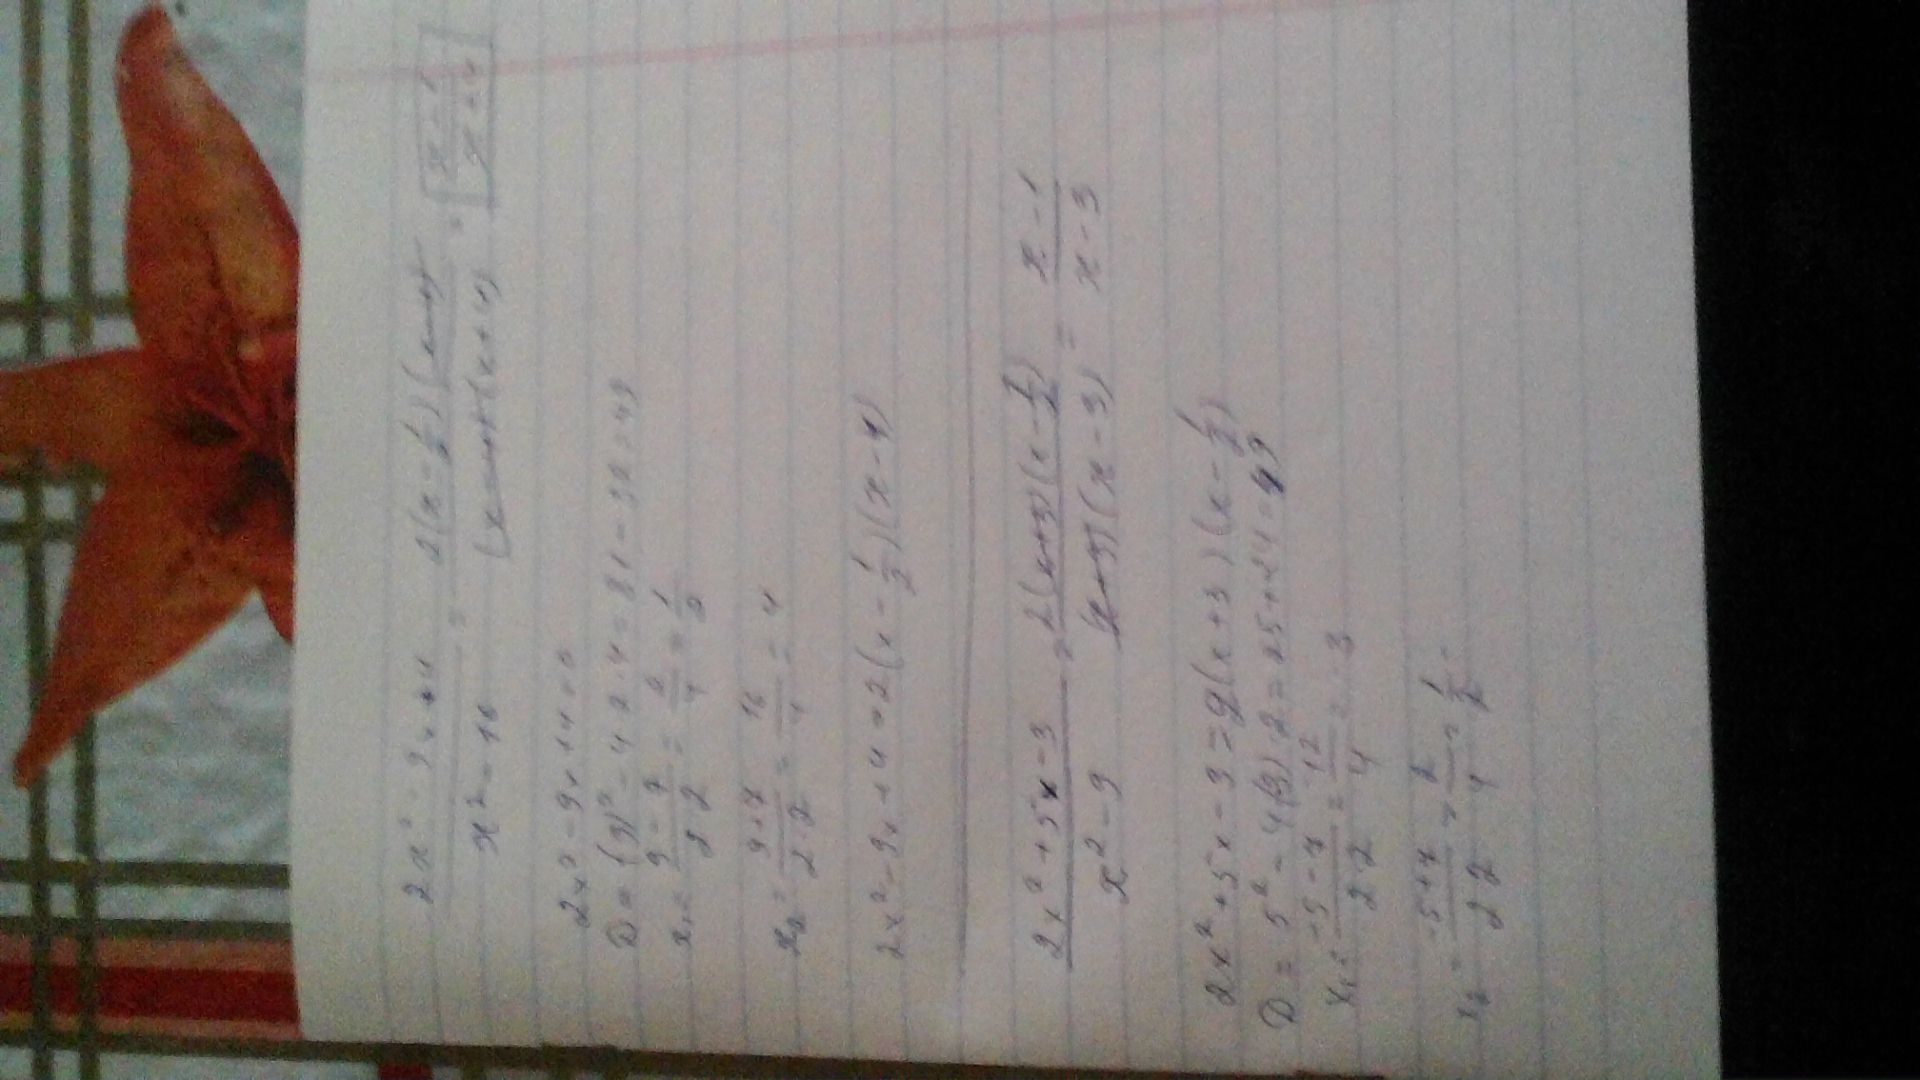 (2x² - 9x + 4)/(x² - 16) = (2(x - 1/2)(x-4))/((x-4)(x+4)) = (x-1)/(x+4)
2x² - 9x + 4 = 0
D = (9)² - 4·2·4 = 81 - 32 = 49
x₁ = (9 - 7)/(2·2) = 2/4 = 1/2
x₂ = (9+7)/(2·2) = 16/4 = 4
2x² - 9x + 4 = 2(x - 1/2)(x - 4)
(2x² + 5x - 3)/(x² - 9) = (2(x+3)(x - 1/2))/((x+3)(x - 3)) = (x - 1)/(x - 3)
2x² + 5x - 3 = 2(x+3)(x - 1/2)
D = 5² - 4(3)·2 = 25 + 24 = 49
x₁ = (-5 - 7)/(2·2) = 12/4 = -3
x₂ = (-5+7)/(2·2) = 2/4 = 1/2